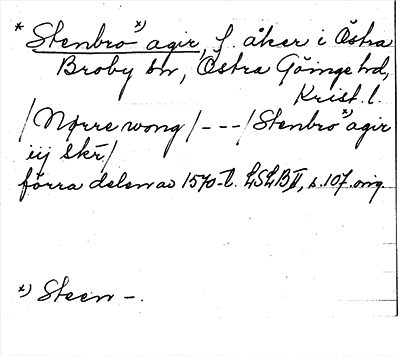 * Stenbro x) agir, f. åker i Östra
Broby sn, Östra Göinge hd,
Krist. l.
/Nørre wong/ --- /Stenbro x) agir
iij Skr/
förra delen av 1570-t. LSLB II, s. 107. orig.
x) Steen -.